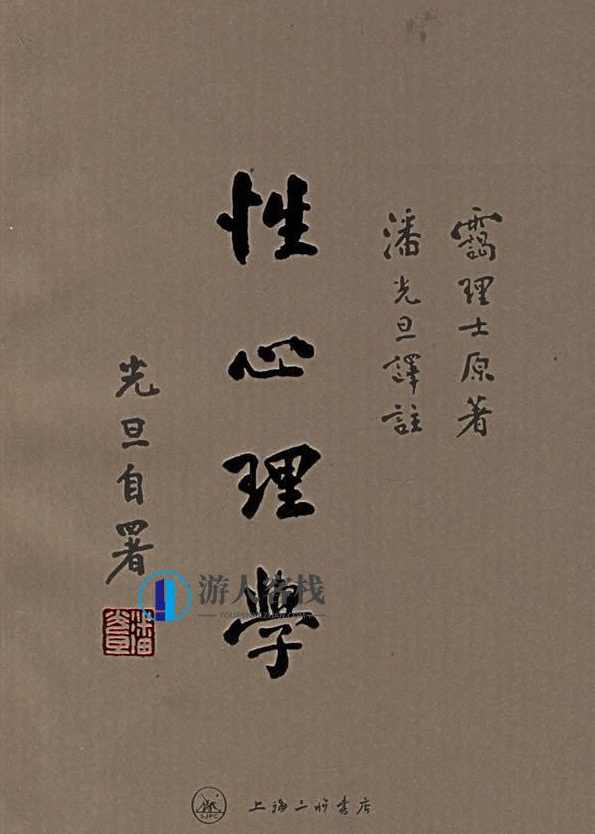 靄理士原著
潘光旦譯註
性心理學
光旦自署
游人客栈
SJPC
上海三联书店